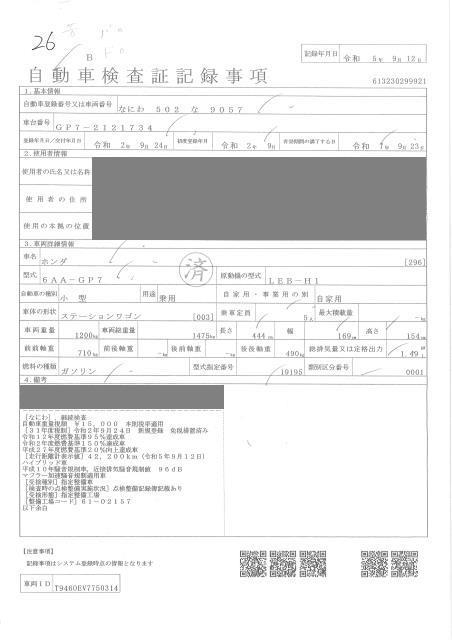 26
B
記録年月日 令和 5年 9月12日
自動車検査証記録事項
613230299921
1.基本情報
自動車登録番号又は車両番号 なにわ 502 な 9057
車台番号 GP7-2121734
登録年月日/交付年月日 令和 2年 9月24日 初度登録年月 令和 2年 9月 有効期間の満了する日 令和 7年 9月23日
2.使用者情報
使用者の氏名又は名称
使用者の住所
使用の本拠の位置
3.車両詳細情報
車名 ホンダ [296]
型式 6AA-GP7 済 原動機の型式 LEB-H1
自動車の種別 小型 用途 乗用 自家用・事業用の別 自家用
車体の形状 ステーションワゴン [003] 乗車定員 5人 最大積載量 -kg
車両重量 1200kg 車両総重量 1475kg 長さ 444cm 幅 169cm 高さ 154cm
前前軸重 710kg 前後軸重 -kg 後前軸重 -kg 後後軸重 490kg 総排気量又は定格出力 1.49L
燃料の種類 ガソリン 型式指定番号 19195 類別区分番号 0001
4.備考
[なにわ],継続検査
自動車重量税額 ¥15,000 本則税率適用
[31年度税制]令和2年9月24日 新規登録 免税措置済み
令和12年度燃費基準95%達成車
令和2年度燃費基準150%達成車
平成27年度燃費基準20%向上達成車
[走行距離計表示値]42,200km(令和5年9月12日)
ハイブリッド車
平成10年騒音規制車,近接排気騒音規制値 96dB
マフラー加速騒音規制適用車
[受検種別]指定整備車
[検査時の点検整備実施状況]点検整備記録簿記載あり
[受検形態]指定整備工場
[整備工場コード]61-02157
以下余白
【注意事項】
記録事項はシステム登録時点の情報となります
車両ID T9460EV7750314